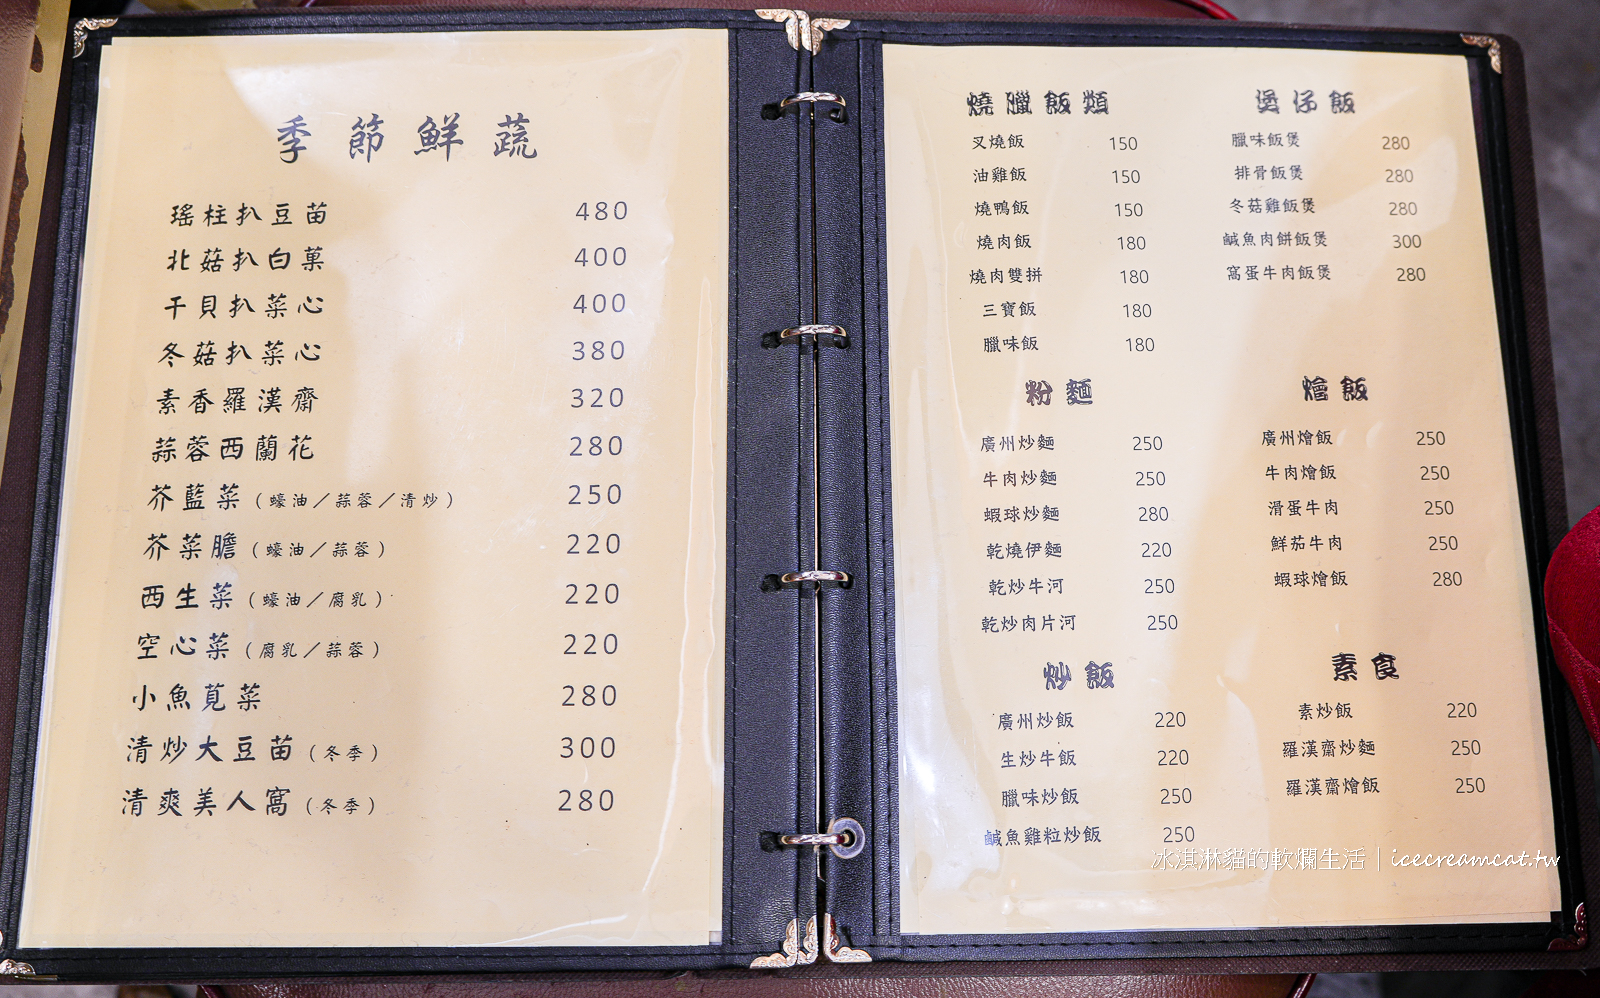 季節鮮蔬
瑤柱扒豆苗 480
北菇扒白菓 400
干貝扒菜心 400
冬菇扒菜心 380
素香羅漢齋 320
蒜蓉西蘭花 280
芥藍菜（蠔油／蒜蓉／清炒） 250
芥菜膽（蠔油／蒜蓉） 220
西生菜（蠔油／腐乳） 220
空心菜（腐乳／蒜蓉） 220
小魚莧菜 280
清炒大豆苗（冬季） 300
清爽美人窩（冬季） 280
燒臘飯類
叉燒飯 150
油雞飯 150
燒鴨飯 150
燒肉飯 180
燒肉雙拼 180
三寶飯 180
臘味飯 180
煲仔飯
臘味飯煲 280
排骨飯煲 280
冬菇雞飯煲 280
鹹魚肉餅飯煲 300
窩蛋牛肉飯煲 280
粉麵
廣州炒麵 250
牛肉炒麵 250
蝦球炒麵 280
乾燒伊麵 220
乾炒牛河 250
乾炒肉片河 250
燴飯
廣州燴飯 250
牛肉燴飯 250
滑蛋牛肉 250
鮮茄牛肉 250
蝦球燴飯 280
炒飯
廣州炒飯 220
生炒牛飯 220
臘味炒飯 250
鹹魚雞粒炒飯 250
素食
素炒飯 220
羅漢齋炒麵 250
羅漢齋燴飯 250
冰淇淋貓的軟爛生活｜icecreamcat.tw